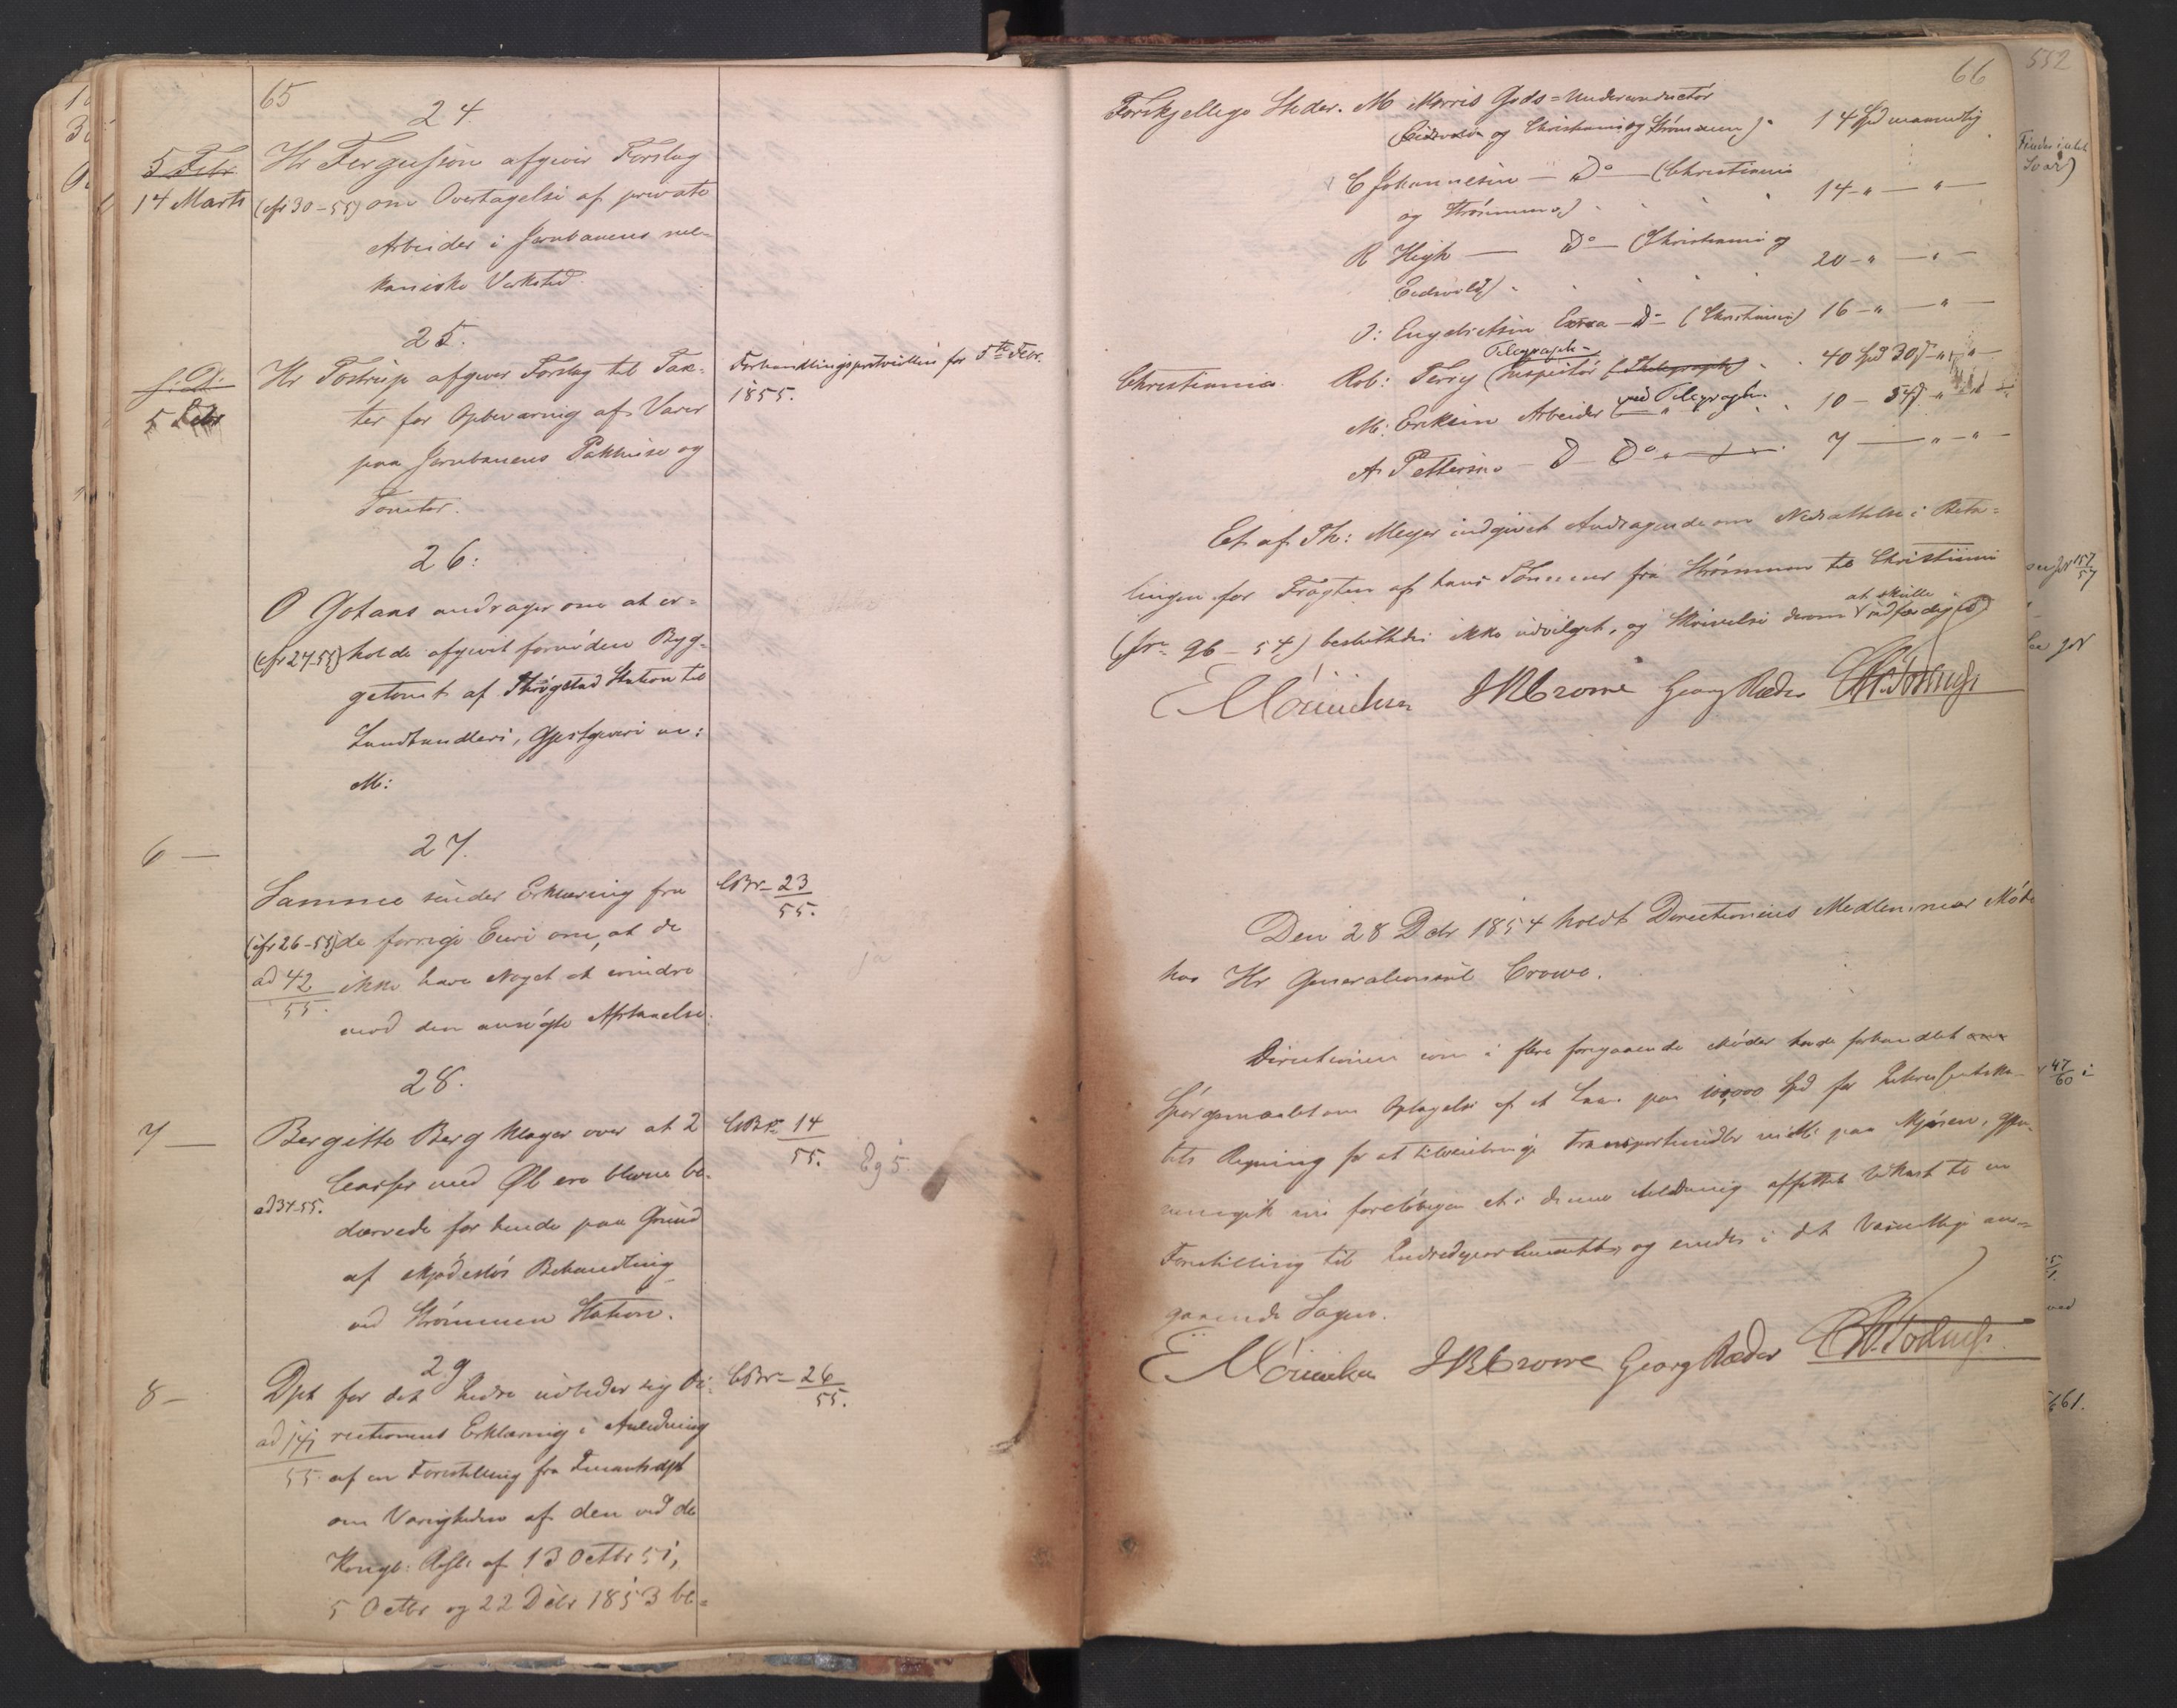 65
24.
5 Febr
14 Marts
Hr Ferguson afgiver Forslag
(cfr 30-55) om Overtagelse af private
Arbeider i Jernbanens me-
kaniske Verksted.
25.
s: D:
5 Febr
Hr Tostrup afgiver Forslag til Tax-
ter for Opbevaring af Varer
paa Jernbanens Pakhuse og
Tomter.
Forhandlingsprotocollen for 5te Febr.
1855.
26:
O Gotaas andrager om at er-
(cfr 27-55) holde afgivet fornøden Byg-
getomt af Thrøgstad Station til
Landhandleri, Gjestgiveri m:
M:
27.
6 —
Samme sender Erklæring fra
(cfr 26-55) de forrige Eiere om, at de
ad 42/55. ikke have Noget at erindre
mod den ansøgte Afstaaelse.
CBr- 23/55.
28.
7 —
Bergitte Berg klager over at 2
ad 34-55. Casser med Øl ere blevne be-
dærvede for hende paa Grund
af skjødesløs Behandling
ved Strømmen Station.
CBR 14/55.
29
8 —
Dpt for det Indre udbeder sig Di-
ad 141/55 rectionens Erklæring i Anledning
af en Forestilling fra Finantsdpt
om Varigheden af den ved de
Kongl: Resl: af 13 Octbr 51,
5 Octbr og 22 Decbr 1853 be-
CBr- 26/55.
66
Forskjellige Steder. M Morris Gods=Underconductør
(Eidsvold og Christiania og Strømmen) 14 Spd maanedlig
C Johannesen — Do — (Christiania
og Strømmen) 14 - " — " —
R High — Do — (Christiania og
Eidsvold) 20 - " — " —
O: Engebretsen Extra — Do — (Christiania) 16 - " — " —
Christiania. Rob: Terry (Telegraph-Inspector (Thelegraph) 40 Spd 30 s - " - " -
M: Eriksen Arbeider (ved Telegraphen 10 — 34 s - "
A Pettersen — D — Do 7 — " — " —
Et af Th: Meyer indgivet Andragende om Nedsættelse i Beta-
lingen for Fragten af hans Tømmer fra Strømmen til Christiania
(Jrn 96 — 54) besluttedes ikke indvilget, og Skrivelse derom at skulle udfærdiges
E Mørincken JRCrowe Georg Ræder CW. Tostrup
Den 28 Decbr 1854 holdt Directionens Medlemmer Møde
hos Hr Generalconsul Crowe.
Directionen som i flere foregaaende Møder havde forhandlet om
Spørgsmaalet om Optagelse af et Laan paa 100,000 Spd for Interessentska-
bets Regning for at tilveiebringe Transportmidler paa Mjøsen, gjen-
nemgik nu foreløbigen et i denne Anledning affattet Udkast til en
Forestilling til Indredepartementet, og enedes i det Væsentlige an-
gaaende Sagen.
E Mørincken JRCrowe Georg Ræder CW. Tostrup
552
157/57
47/60
61.